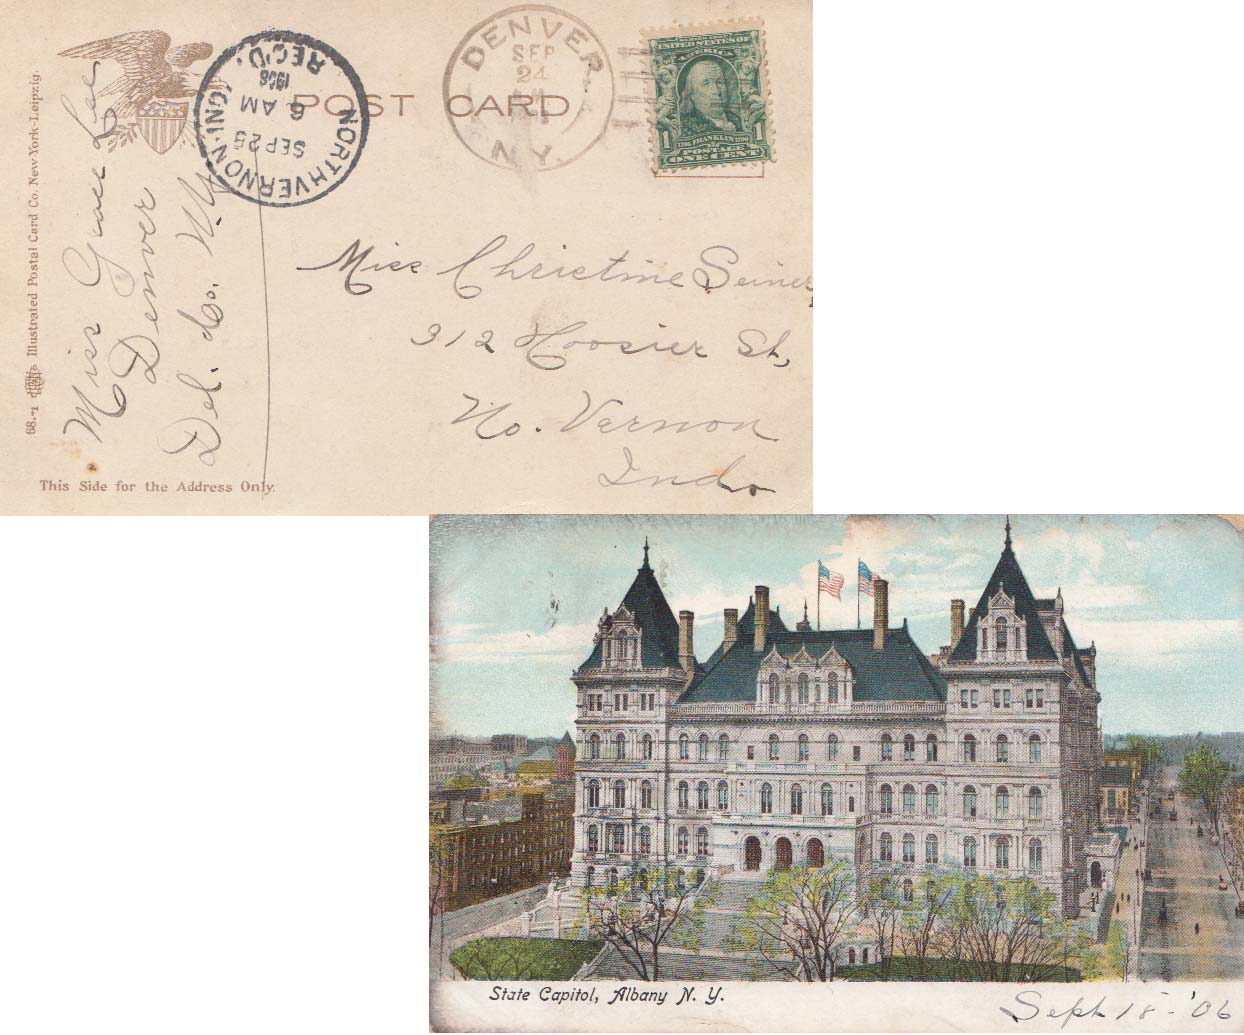 POST CARD
68.-1 Illustrated Postal Card Co. New-York-Leipzig.
NORTH VERNON, IND.
SEP 25
6 AM
1906
REC'D.
DENVER
SEP
24
N.Y.
UNITED STATES OF
AMERICA
1706 FRANKLIN 1790
POSTAGE
1 ONE CENT 1
Miss Grace
Denver
Del. Co. N.Y.
Miss Christine Seiner
312 Hoosier St,
No. Vernon
Ind.
This Side for the Address Only.
State Capitol, Albany N. Y.
Sept 18-'06